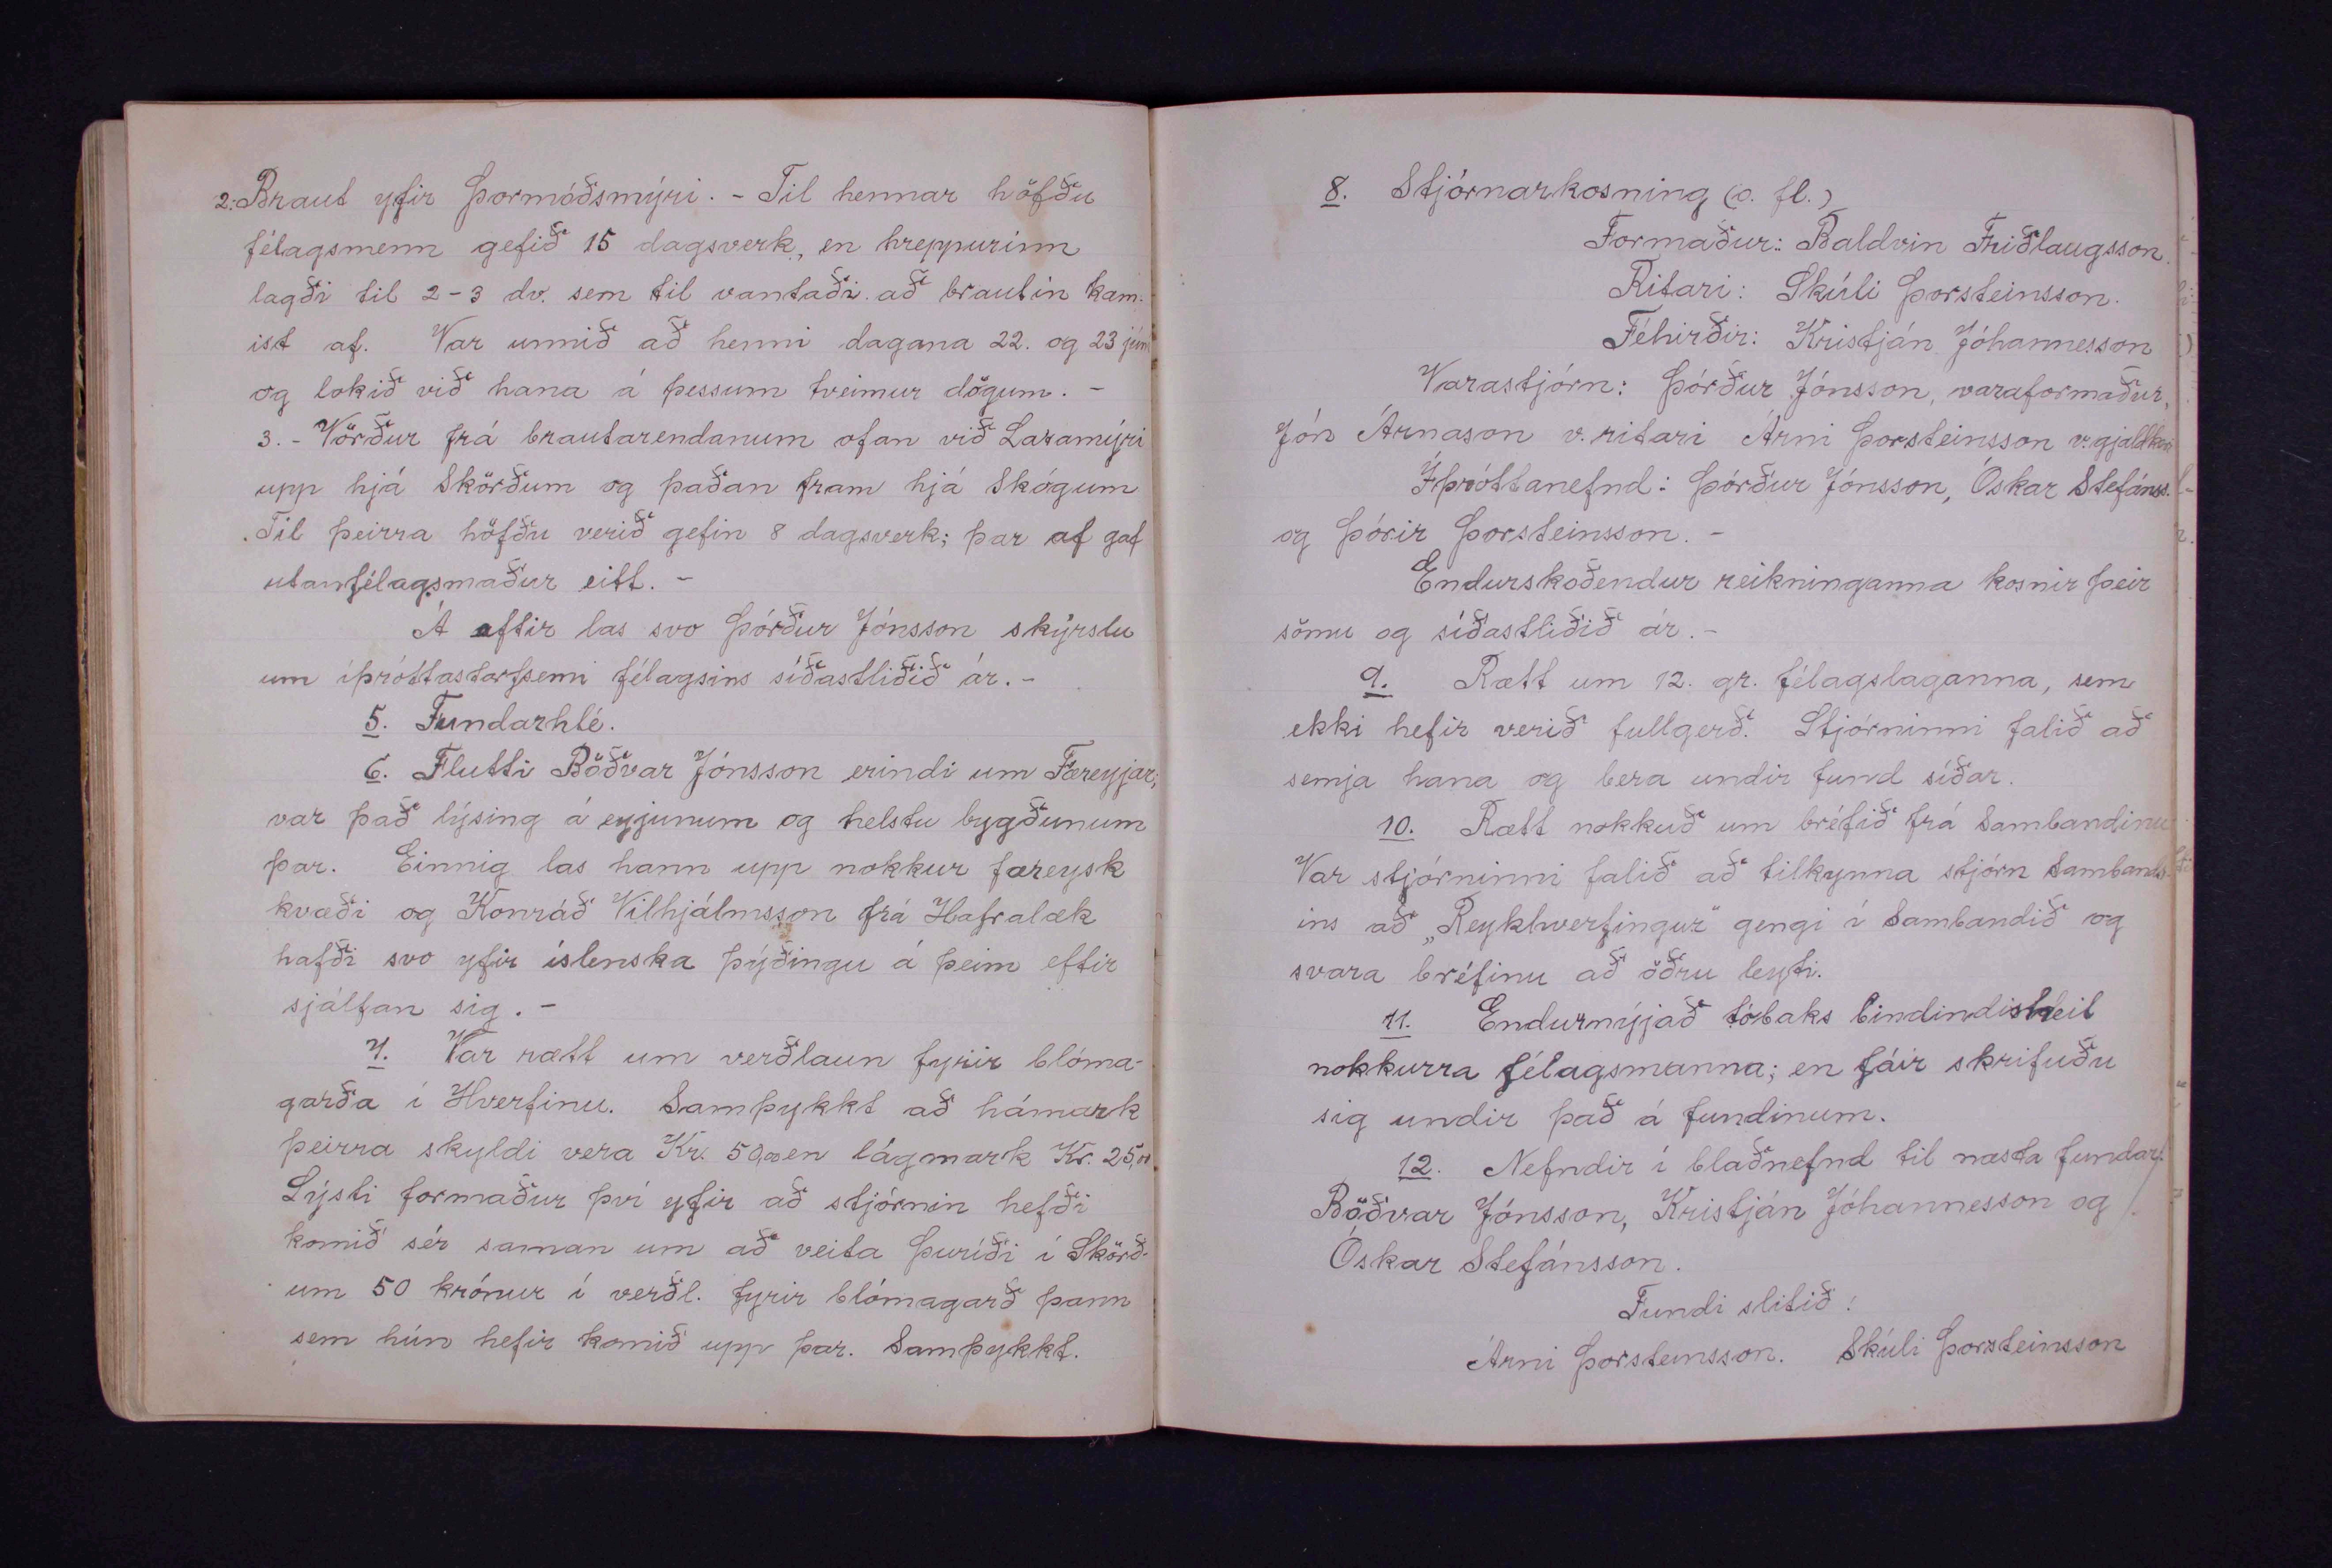 2: Braut yfir Þormóðsmýri. - Til hennar höfðu
félagsmenn gefið 15 dagsverk, en hreppurinn
lagði til 2-3 dv. sem til vantaði að brautin kam-
ist af. Var unnið að henni dagana 22. og 23 júní
og lokið við hana á þessum tveimur dögum. -
3. - Vörður frá brautarendanum ofan við Laxamýri
upp hjá Skörðum og þaðan fram hjá Skógum
Til þeirra höfðu verið gefin 8 dagsverk; þar af gaf
utanfélagsmaður eitt. -
Á eftir las svo Þórður Jónsson skýrslu
um íþróttastarfsemi félagsins síðastliðið ár. -
5. Fundarhlé.
6. Flutti Böðvar Jónsson erindi um Færeyjar;
var það lýsing á eyjunum og helstu bygðunum
þar. Einnig las hann upp nokkur færeysk
kvæði og Konráð Vilhjálmsson frá Hafralæk
hafði svo yfir íslenska þýðingu á þeim eftir
sjálfan sig. -
7. Var rætt um verðlaun fyrir blóma-
garða í Hverfinu. Samþykkt að hámark
þeirra skyldi vera Kr. 50,00 en lágmark Kr. 25,00.
Lýsti formaður því yfir að stjórnin hefði
komið sér saman um að veita Þuríði í Skörð-
um 50 krónur í verðl. fyrir blómagarð þann
sem hún hefir komið upp þar. Samþykkt.
8. Stjórnarkosning (o. fl.)
Formaður: Baldvin Friðlaugsson.
Ritari: Skúli Þorsteinsson.
Féhirðir: Kristján Jóhannesson
Varastjórn: Þórður Jónsson, varaformaður,
Jón Árnason v. ritari Árni Þorsteinsson v. gjaldkeri
Íþróttanefnd: Þórður Jónsson, Óskar Stefánss.
og Þórir Þorsteinsson. -
Endurskoðendur reikninganna kosnir þeir
sömu og síðastliðið ár. -
9. Rætt um 12. gr. félagslaganna, sem
ekki hefir verið fullgerð. Stjórninni falið að
semja hana og bera undir fund síðar.
10. Rætt nokkuð um bréfið frá Sambandinu
Var stjórninni falið að tilkynna stjórn Sambands-
ins að „Reykhverfingur" gengi í Sambandið og
svara bréfinu að öðru leyti.
11. Endurnýjað tóbaks bindindisheit
nokkurra félagsmanna; en fáir skrifuðu
sig undir það á fundinum.
12. Nefndir í blaðnefnd til næsta fundar:
Böðvar Jónsson, Kristján Jóhannesson og
Óskar Stefánsson.
Fundi slitið!
Árni Þorsteinsson. Skúli Þorsteinsson